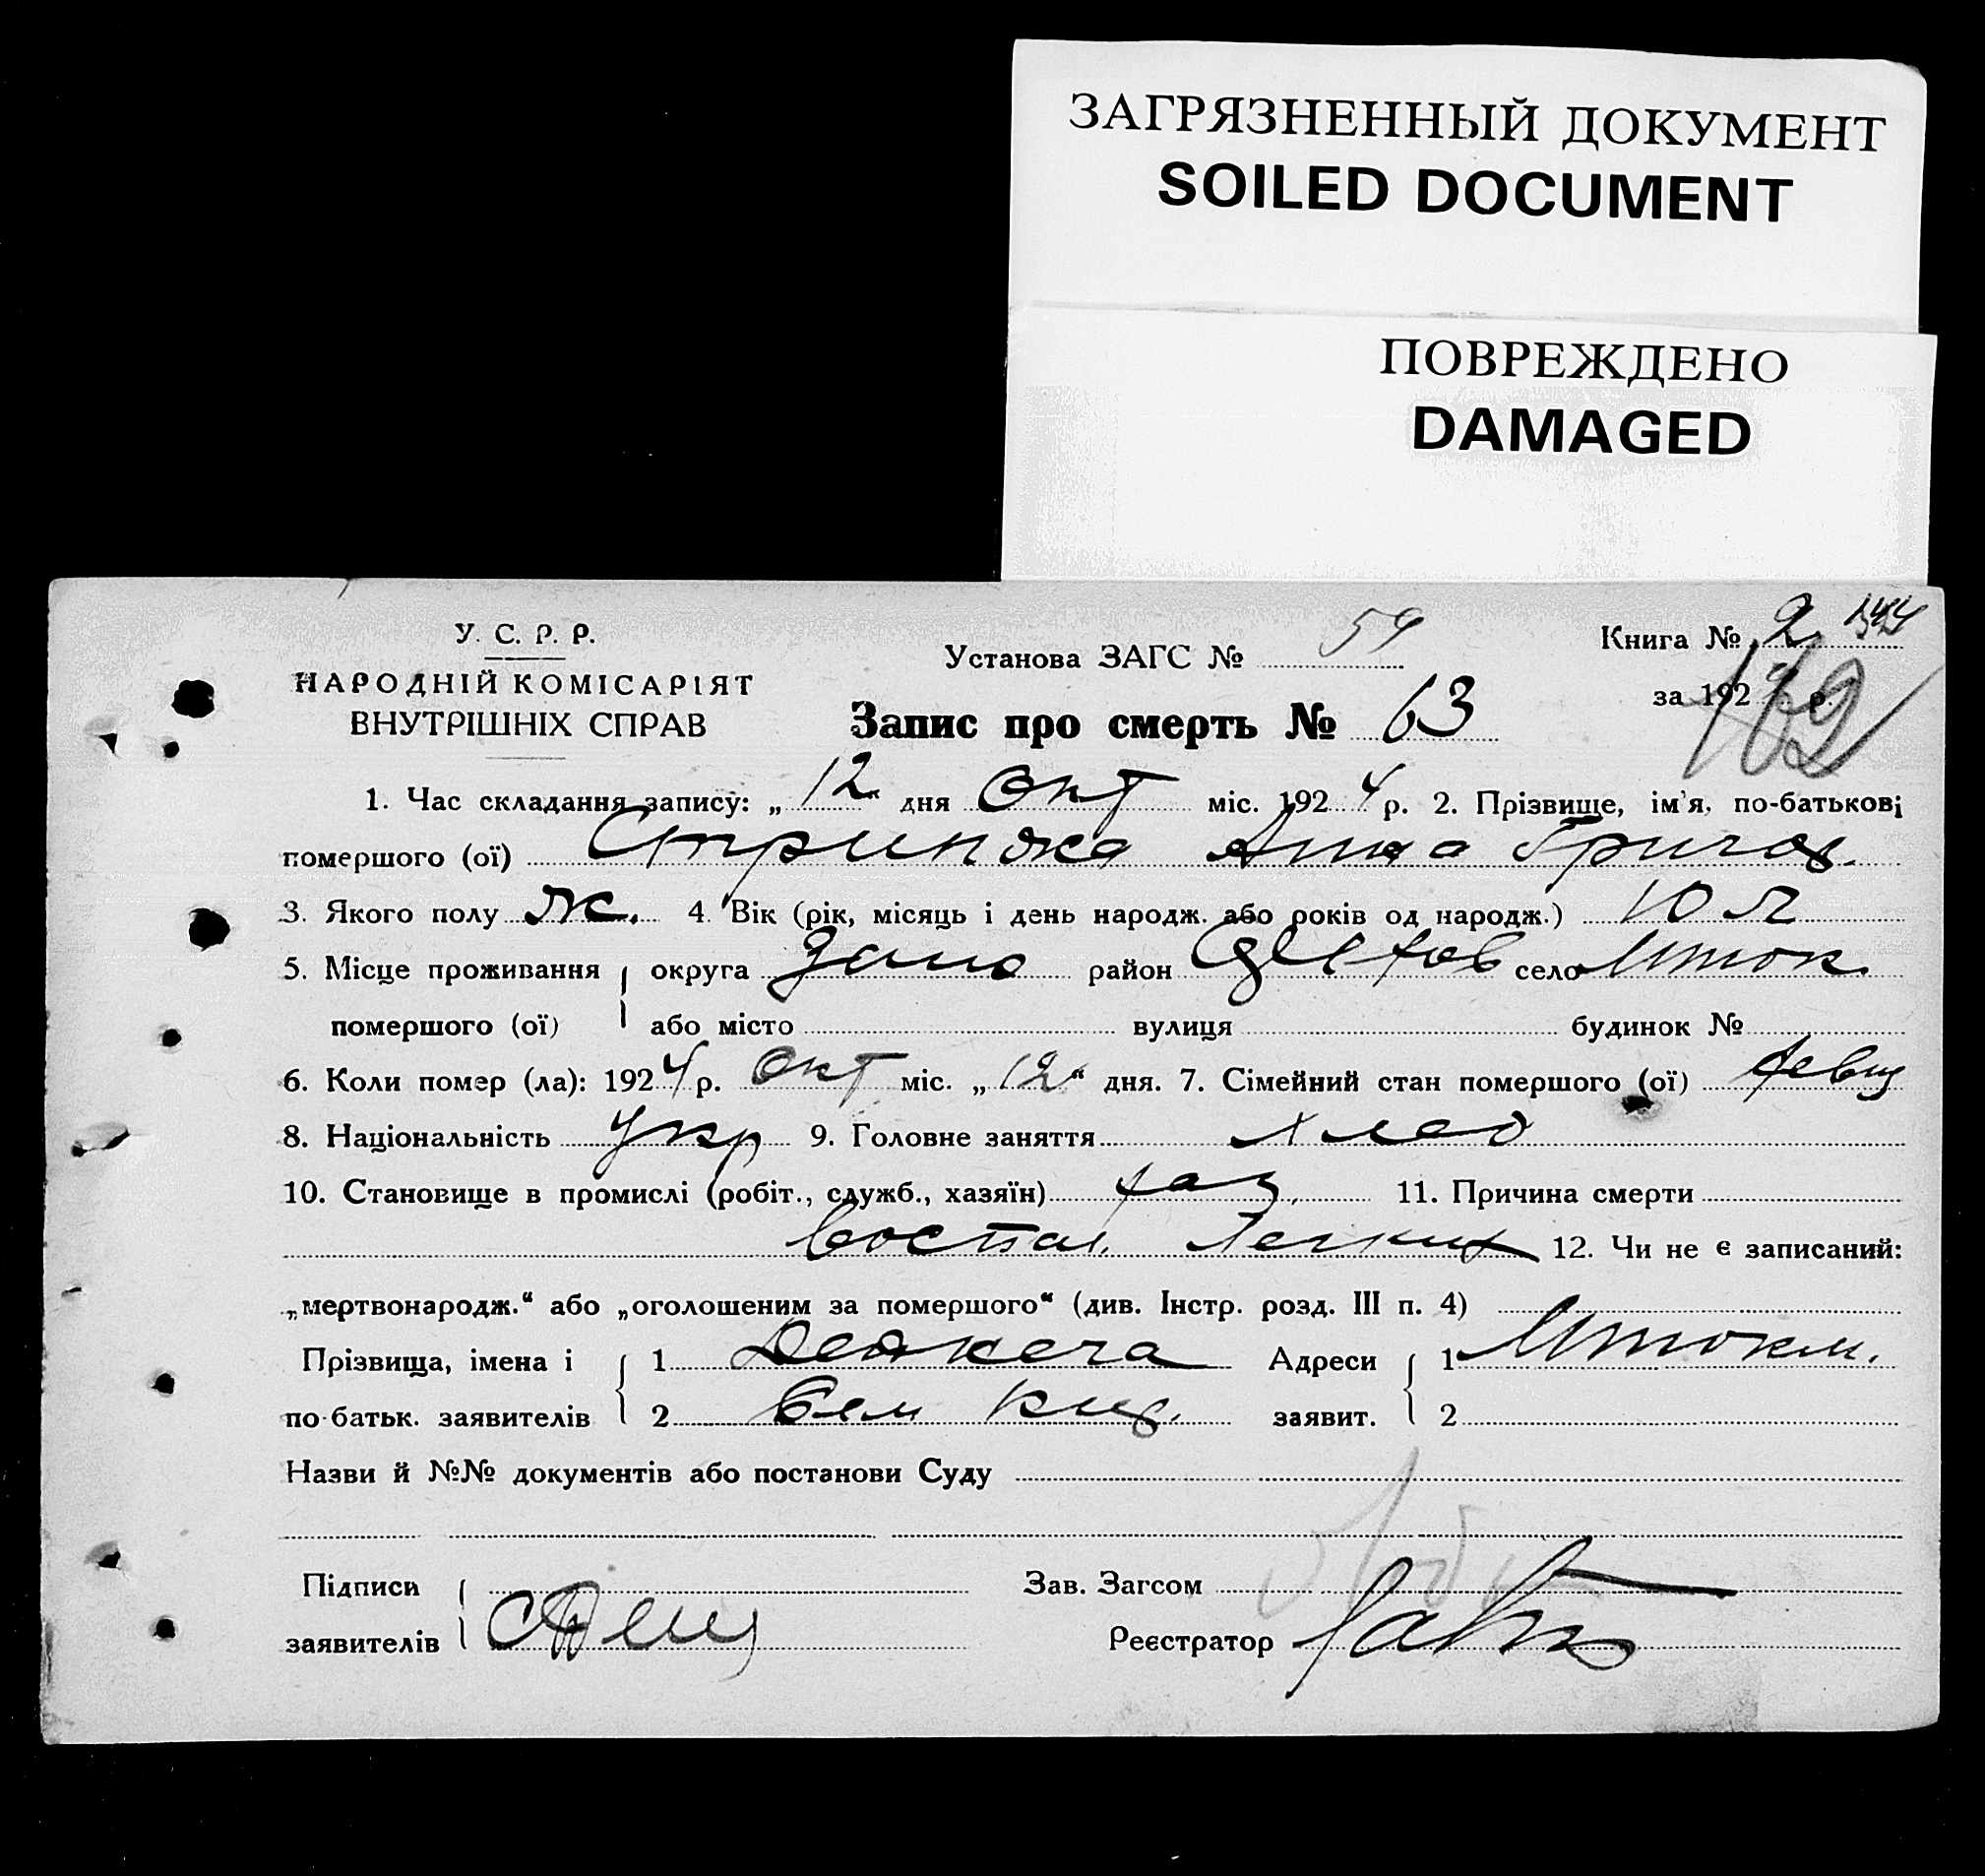 ЗАГРЯЗНЕННЫЙ ДОКУМЕНТ
SOILED DOCUMENT
ПОВРЕЖДЕНО
DAMAGED
У. С. Р. Р.
НАРОДНІЙ КОМІСАРІЯТ
ВНУТРІШНІХ СПРАВ
Установа ЗАГС № 59
Книга № 2
за 192 р.
162
Запис про смерть № 63
1. Час складання запису: „12“ дня Окт міс. 1924 р. 2. Прізвище, ім'я, по-батькові
помершого (ої) Анна Григор.
3. Якого полу ж. 4. Вік (рік, місяць і день народж. або років од народж.) 10 л
5. Місце проживання округа Запо район село Иток.
помершого (ої) або місто вулиця будинок №
6. Коли помер (ла): 1924 р. Окт міс. „12“ дня. 7. Сімейний стан помершого (ої) девиц
8. Національність Укр 9. Головне заняття хлеб
10. Становище в промислі (робіт., служб., хазяїн) хаз. 11. Причина смерти
Воспал. Легких 12. Чи не є записаний:
„мертвонародж.“ або „оголошеним за помершого“ (див. Інстр. розд. III п. 4)
Прізвища, імена і 1 Адреси 1 Итокм.
по-батьк. заявителів 2 заявит. 2
Назви й №№ документів або постанови Суду
Підписи Зав. Загсом
заявителів Реєстратор